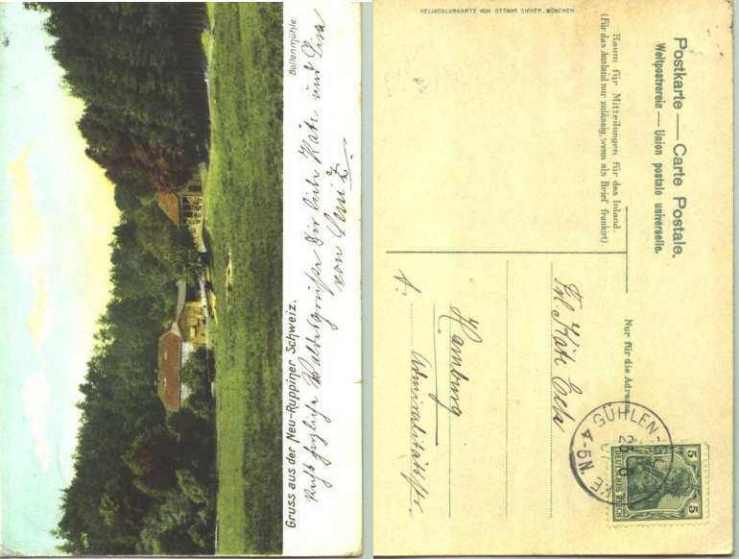 Gruss aus der Neu-Ruppiner Schweiz.
Boltenmühle.
Recht herzliche Waldesgrüße Dir liebe Käte und Lisa
von
HELIOCOLORKARTE VON OTTMAR ZIEHER, MÜNCHEN
Postkarte — Carte Postale.
Weltpostverein — Union postale universelle.
Raum für Mitteilungen für das Inland.
(Für das Ausland nur zulässig, wenn als Brief frankirt)
Nur für die Adresse
Frl. Käte
Hamburg
Admiralitätstr.
GÜHLEN-
4-5N.
5
5
DEUTSCHES REICH